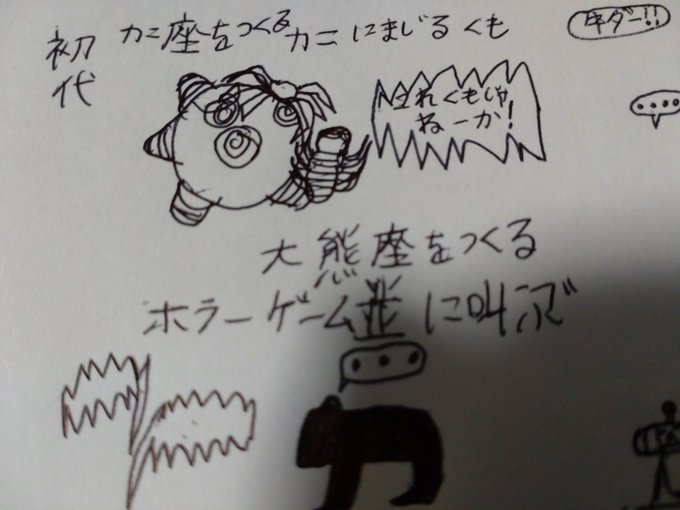 初代
カニ座をつくるカニにまじるくも
それくもじゃ
ねーか!
‥‥
大熊座をつくる
ホラーゲーム並に叫ぶ
・・・